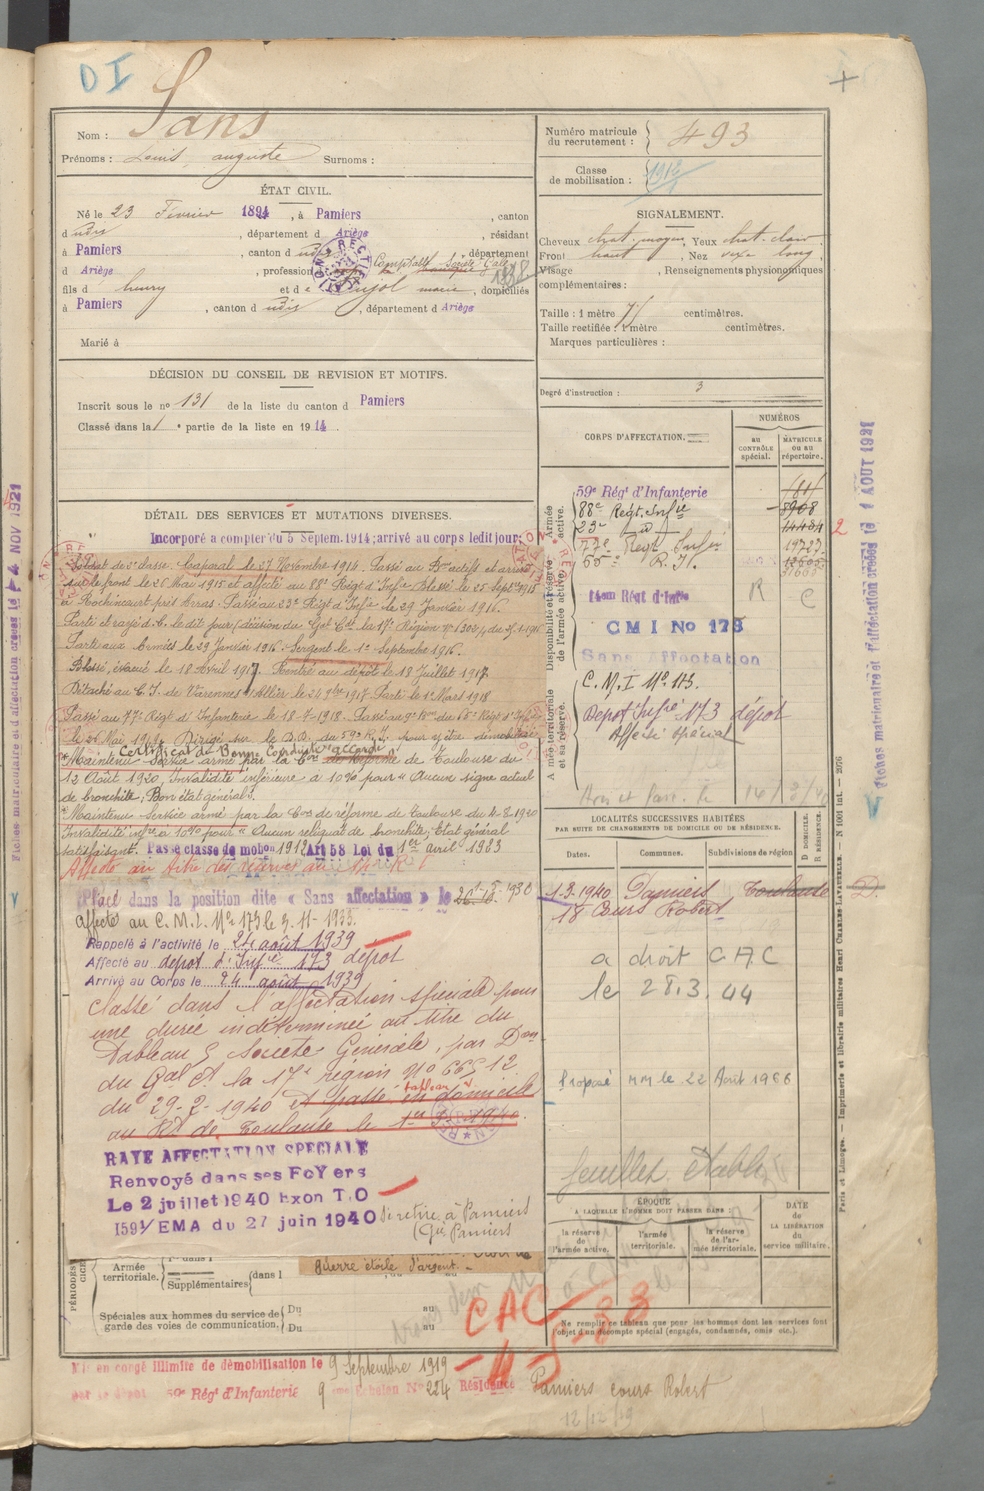 DI
Nom : Sans
Prénoms : Louis, auguste Surnoms :
ÉTAT CIVIL.
Né le 23 Février 1894, à Pamiers, canton
d udit, département d Ariège, résidant
à Pamiers, canton d udit, département
d Ariège, profession Comptable Société Gale
fils d henry et d e Pujol marie, domiciliés
à Pamiers, canton d udit, département d Ariège
Marié à
DÉCISION DU CONSEIL DE REVISION ET MOTIFS.
Inscrit sous le nº 131 de la liste du canton d Pamiers
Classé dans la 1 e partie de la liste en 1914.
DÉTAIL DES SERVICES ET MUTATIONS DIVERSES.
Incorporé a compter du 5 Septem. 1914; arrivé au corps ledit jour;
Soldat de 2e classe. Caporal le 27 Novembre 1914. Passé au Bon actifs et arrivé
sur le front le 26 Mai 1915 et affecté au 88e Régt d'Infie Blessé le 25 Septbre 1915
à Rochincourt près Arras. Passé au 23e Régt d'Infie le 29 Janvier 1916.
Parti et rayé d. C. le dit jour (décision du Gal Cdt la 17e Région
Parti aux Armées le 29 Janvier 1916. Sergent le 1er Septembre 1916.
Blessé, évacué le 18 Avril 1917. Rentré au dépôt le 18 Juillet 1917.
Détaché au C. I. de Varennes s/Allier le 24 9bre 1917. Parti le 1er Mars 1918
Passé au 77e Régt d'Infanterie le 18-7-1918. Passé au
le Mai 1919. Dirigé sur le D.D. du 59e R.I. pour y être démobilisé
Certificat de Bonne Conduite accordé
Maintenu Service armé par la Con de Réforme de Toulouse du
12 Août 1920, Invalidité inférieure à 10% pour "Aucun signe actuel
de bronchite, Bon état général".
Maintenu service armé par la Con de réforme de Toulouse du 4-2-1920
Invalidité infre à 10% pour "Aucun reliquat de bronchite; Etat général
satisfaisant. Passe classe de mobon 1912 Art 58 Loi du 1er avril 1923
Affecté au titre des réserves au 14e R I
Placé dans la position dite « Sans affectation » le
affecté au C.M.I. Nº 173 le 3-11-1933.
Rappelé à l'activité le 24 août 1939
Affecté au depot d'Infie 173 dépot
Arrivé au Corps le 24 août 1939
Classé dans l'affectation spéciale pour
une durée indéterminée au titre du
Tableau 5 Societe Generale, par Don
du Gal Ct la 17e région No 665 12
du 29-2-1940 et passé en domicile
au Rt de Toulouse le
RAYE AFFECTATION SPECIALE
Renvoyé dans ses FoYers
Le 2 juillet 1940 Exon T.O
1591/EMA du 27 juin 1940
Se retire à Pamiers
(Gie Pamiers
PÉRIODES
Armée territoriale.
Supplémentaires dans l
guerre étoile d'argent.
Spéciales aux hommes du service de garde des voies de communication.
Du au
Du au
CAC
Mis en congé illimité de démobilisation le 9 Septembre 1919
par le dépot 59e Régt d'Infanterie 9 eme Echelon No 224 Résidence Pamiers cours Robert
12/12/19
Numéro matricule du recrutement : 493
Classe de mobilisation : 1912
SIGNALEMENT.
Cheveux chat. moyen, Yeux chat. clair,
Front haut, Nez long,
Visage, Renseignements physionomiques
complémentaires :
Taille : 1 mètre 71 centimètres.
Taille rectifiée : 1 mètre centimètres.
Marques particulières :
Degré d'instruction : 3
CORPS D'AFFECTATION.
NUMÉROS
au CONTRÔLE spécial.
MATRICULE OU AU répertoire.
Armée active.
59e Régt d'Infanterie
88e Régt Infie 8908
23e 14484
77e Regt Infie 19727
65e R. I.
Disponibilité et réserve de l'armée active.
14em Régt d'Infie R C
CMI No 173
Sans Affectation
Armée territoriale et sa réserve.
C.M.I Nº 173.
Depot Infie 173 dépot
Affecté Spécial
LOCALITÉS SUCCESSIVES HABITÉES
PAR SUITE DE CHANGEMENTS DE DOMICILE OU DE RÉSIDENCE.
Dates. Communes. Subdivisions de région
D DOMICILE. R RÉSIDENCE.
1-3-1940 Pamiers Toulouse D.
18 Cours Robert
a droit CAC
le 28.3.44
Proposé MM le 22 Août 1966
feuillet établi
ÉPOQUE
A LAQUELLE L'HOMME DOIT PASSER DANS :
la réserve de l'armée active.
l'armée territoriale.
la réserve de l'armée territoriale.
DATE de LA LIBÉRATION du service militaire.
Ne remplir ce tableau que pour les hommes dont les services font
l'objet d'un décompte spécial (engagés, condamnés, omis etc.).
Paris et Limoges. — Imprimerie et librairie militaires Henri CHARLES-LAVAUZELLE. — N 1001 Int. — 2076
Fiches matriculaire et d'affectation créées le 1 AOUT 1921
Fiches matriculaire et d'affectation créées le 4 NOV 1921